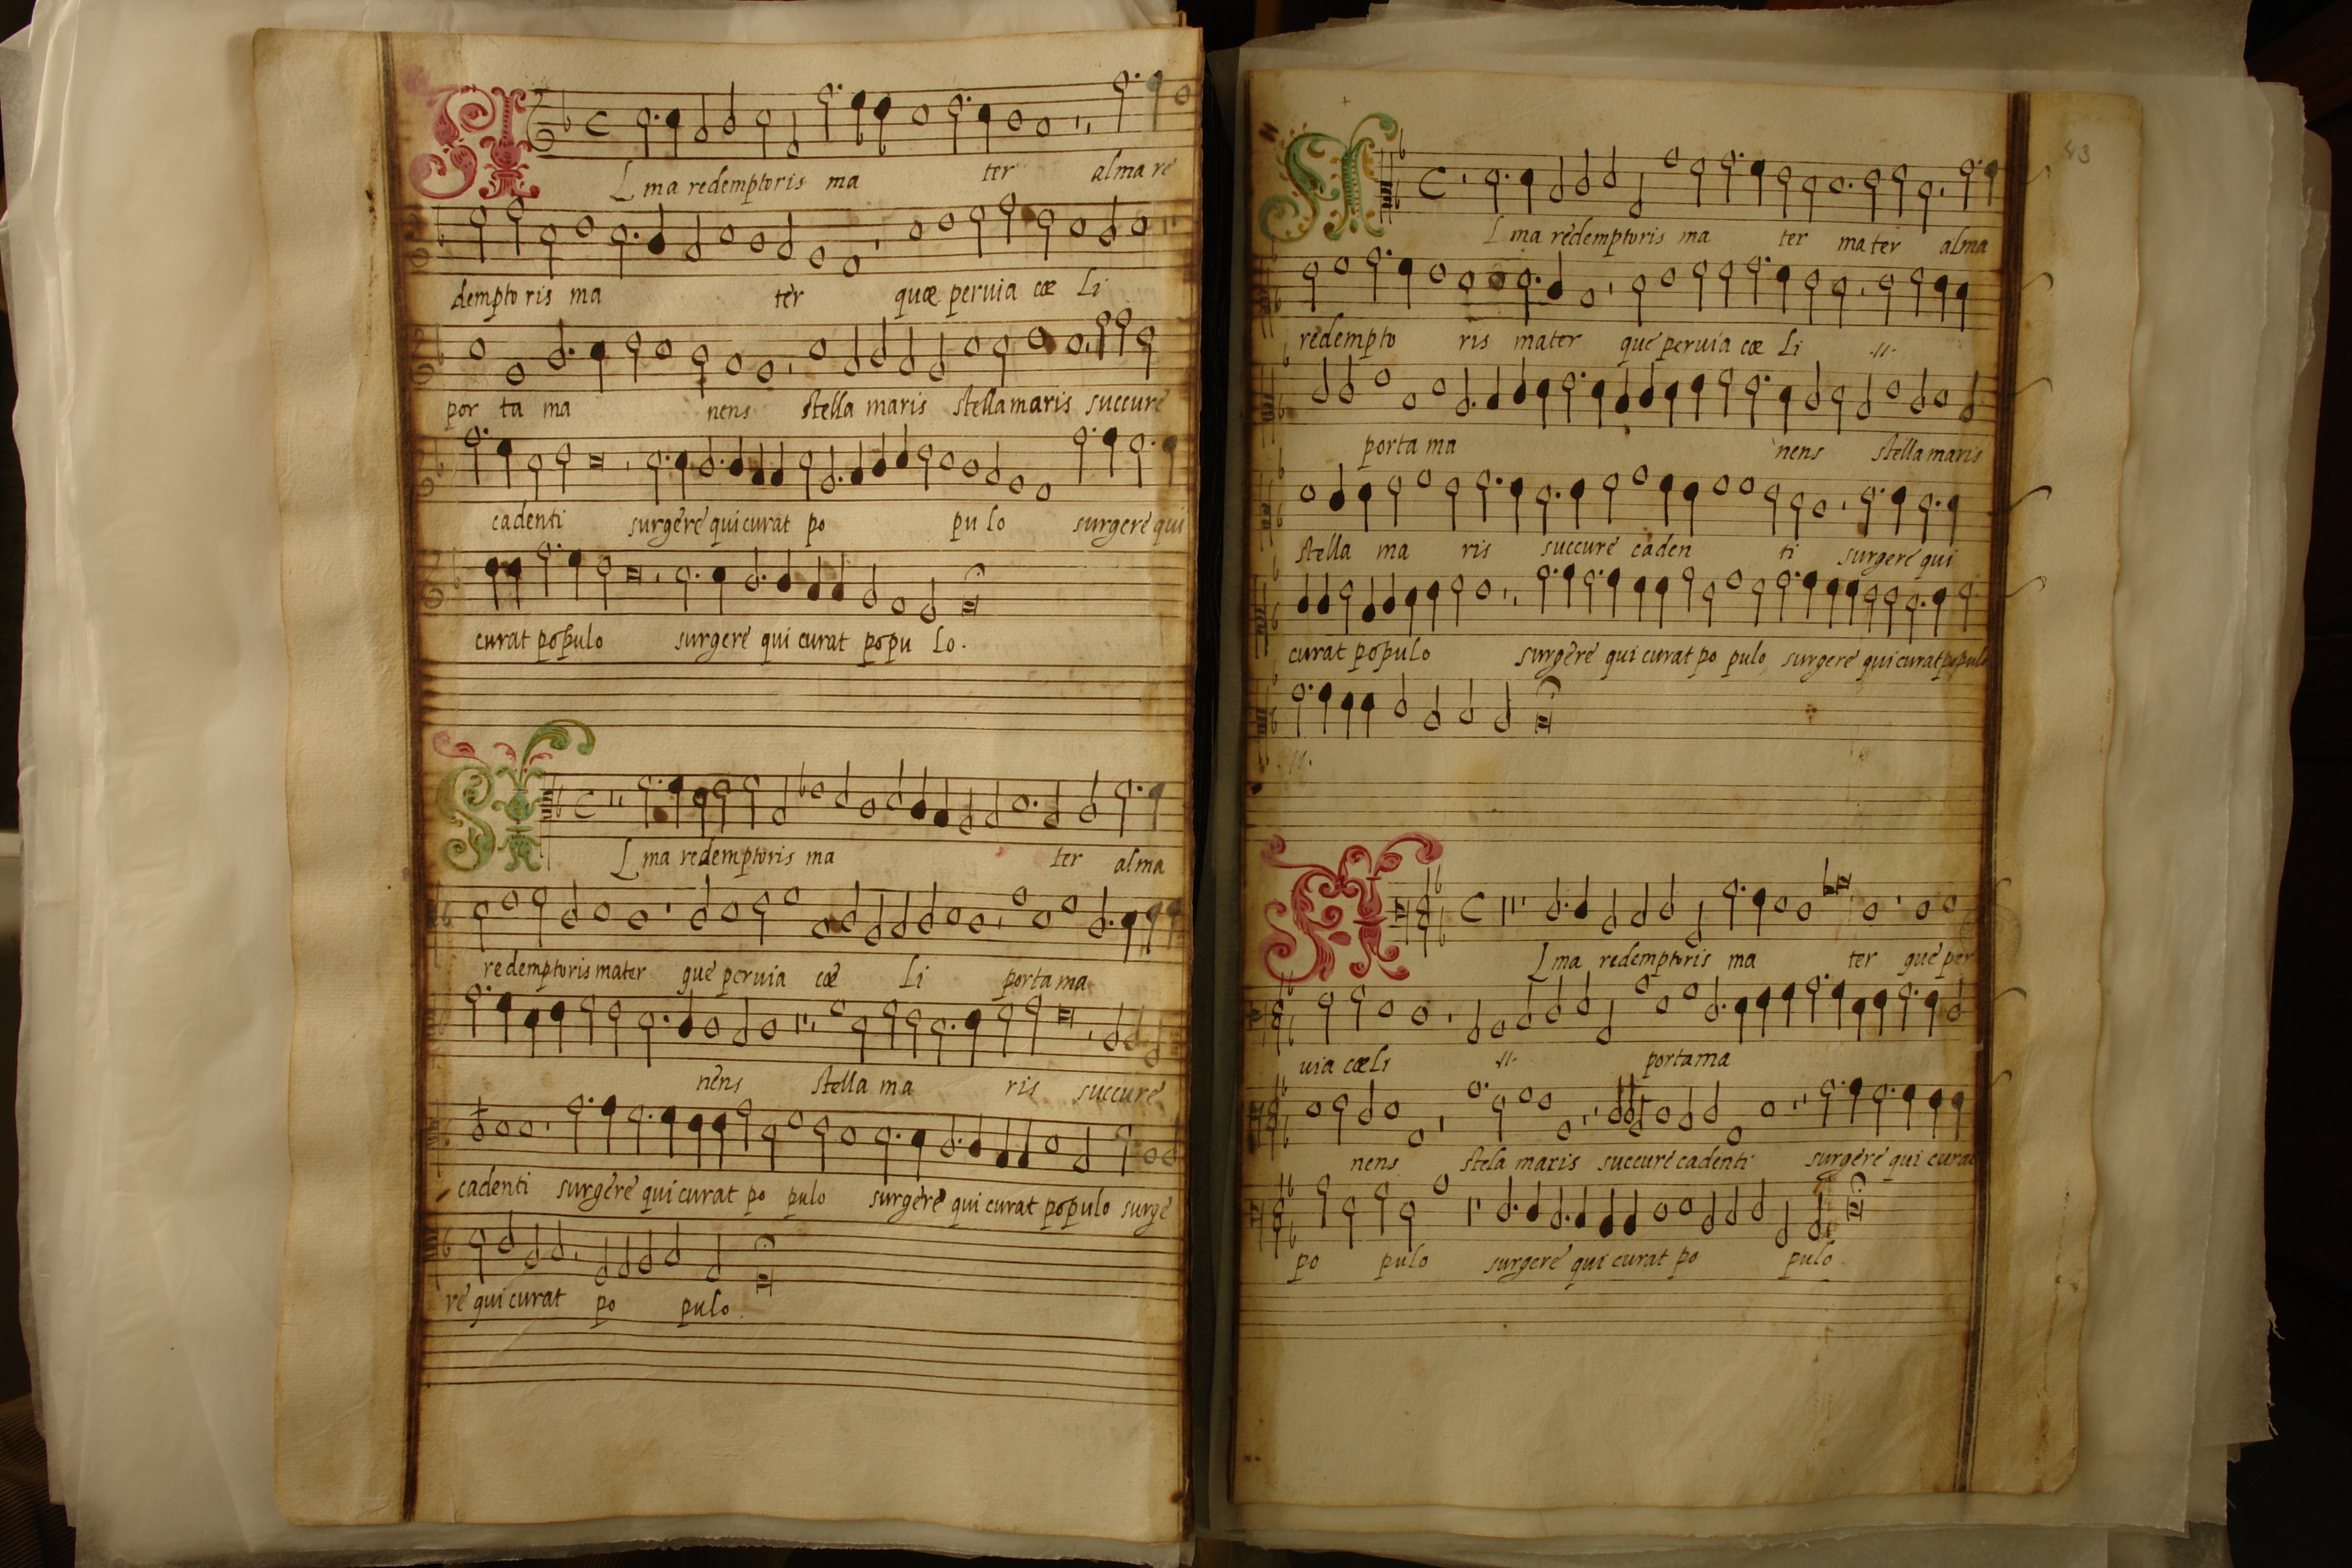 ALma redemptoris ma ter alma re
dempto ris ma ter quæ peruia cæ li
por ta ma nens stella maris stella maris succure
cadenti surgere qui curat po pu lo surgere qui
curat populo surgere qui curat popu lo.
ALma redemptoris ma ter alma
redemptoris mater que peruia cœ li porta ma
nens stella ma ris succure
cadenti surgere qui curat po pulo surgere qui curat populo surge
re qui curat po pulo.
43
ALma redemptoris ma ter ma ter alma
redempto ris mater que peruia cœ li .//.
porta ma nens stella maris
stella ma ris succure caden ti surgere qui
curat populo surgere qui curat po pulo, surgere qui curat populo
.//.
ALma redemptoris ma ter que per
uia cœli .//. porta ma
nens stela maris succure cadenti surgere qui curat
po pulo surgere qui curat po pulo.